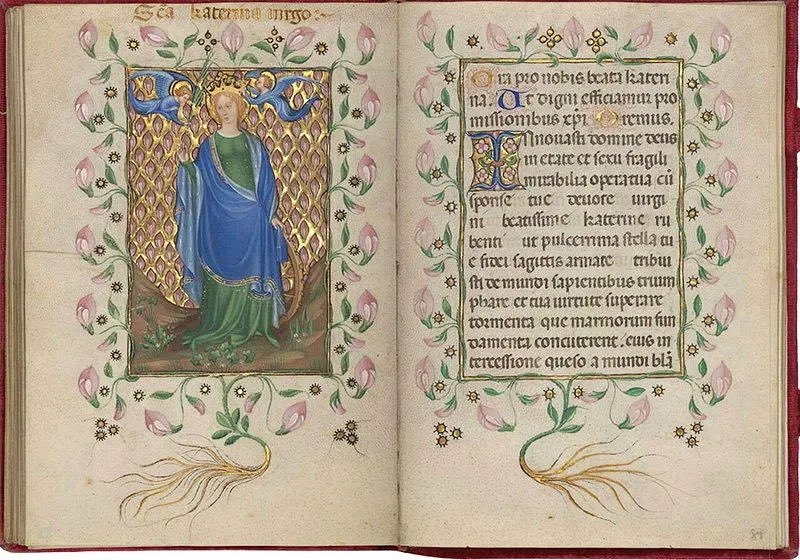 Sca katerina virgo:
Ora pro nobis beata kateri
na. Ut digni efficiamur pro
missionibus xpi. Oremus.
Innouasti domine deus
in etate et sexu fragili
mirabilia operatua cu
sponse tue deuote uirgi
ni beatissime katerine ru
benti ut pulcerrima stella tu
e fidei sagittis armate tribui
sti de mundi sapientibus trium
phare et tua uirtute superare
tormenta que marmorum fun
damenta concuterent. eius in
tercessione queso a mundi bla
84